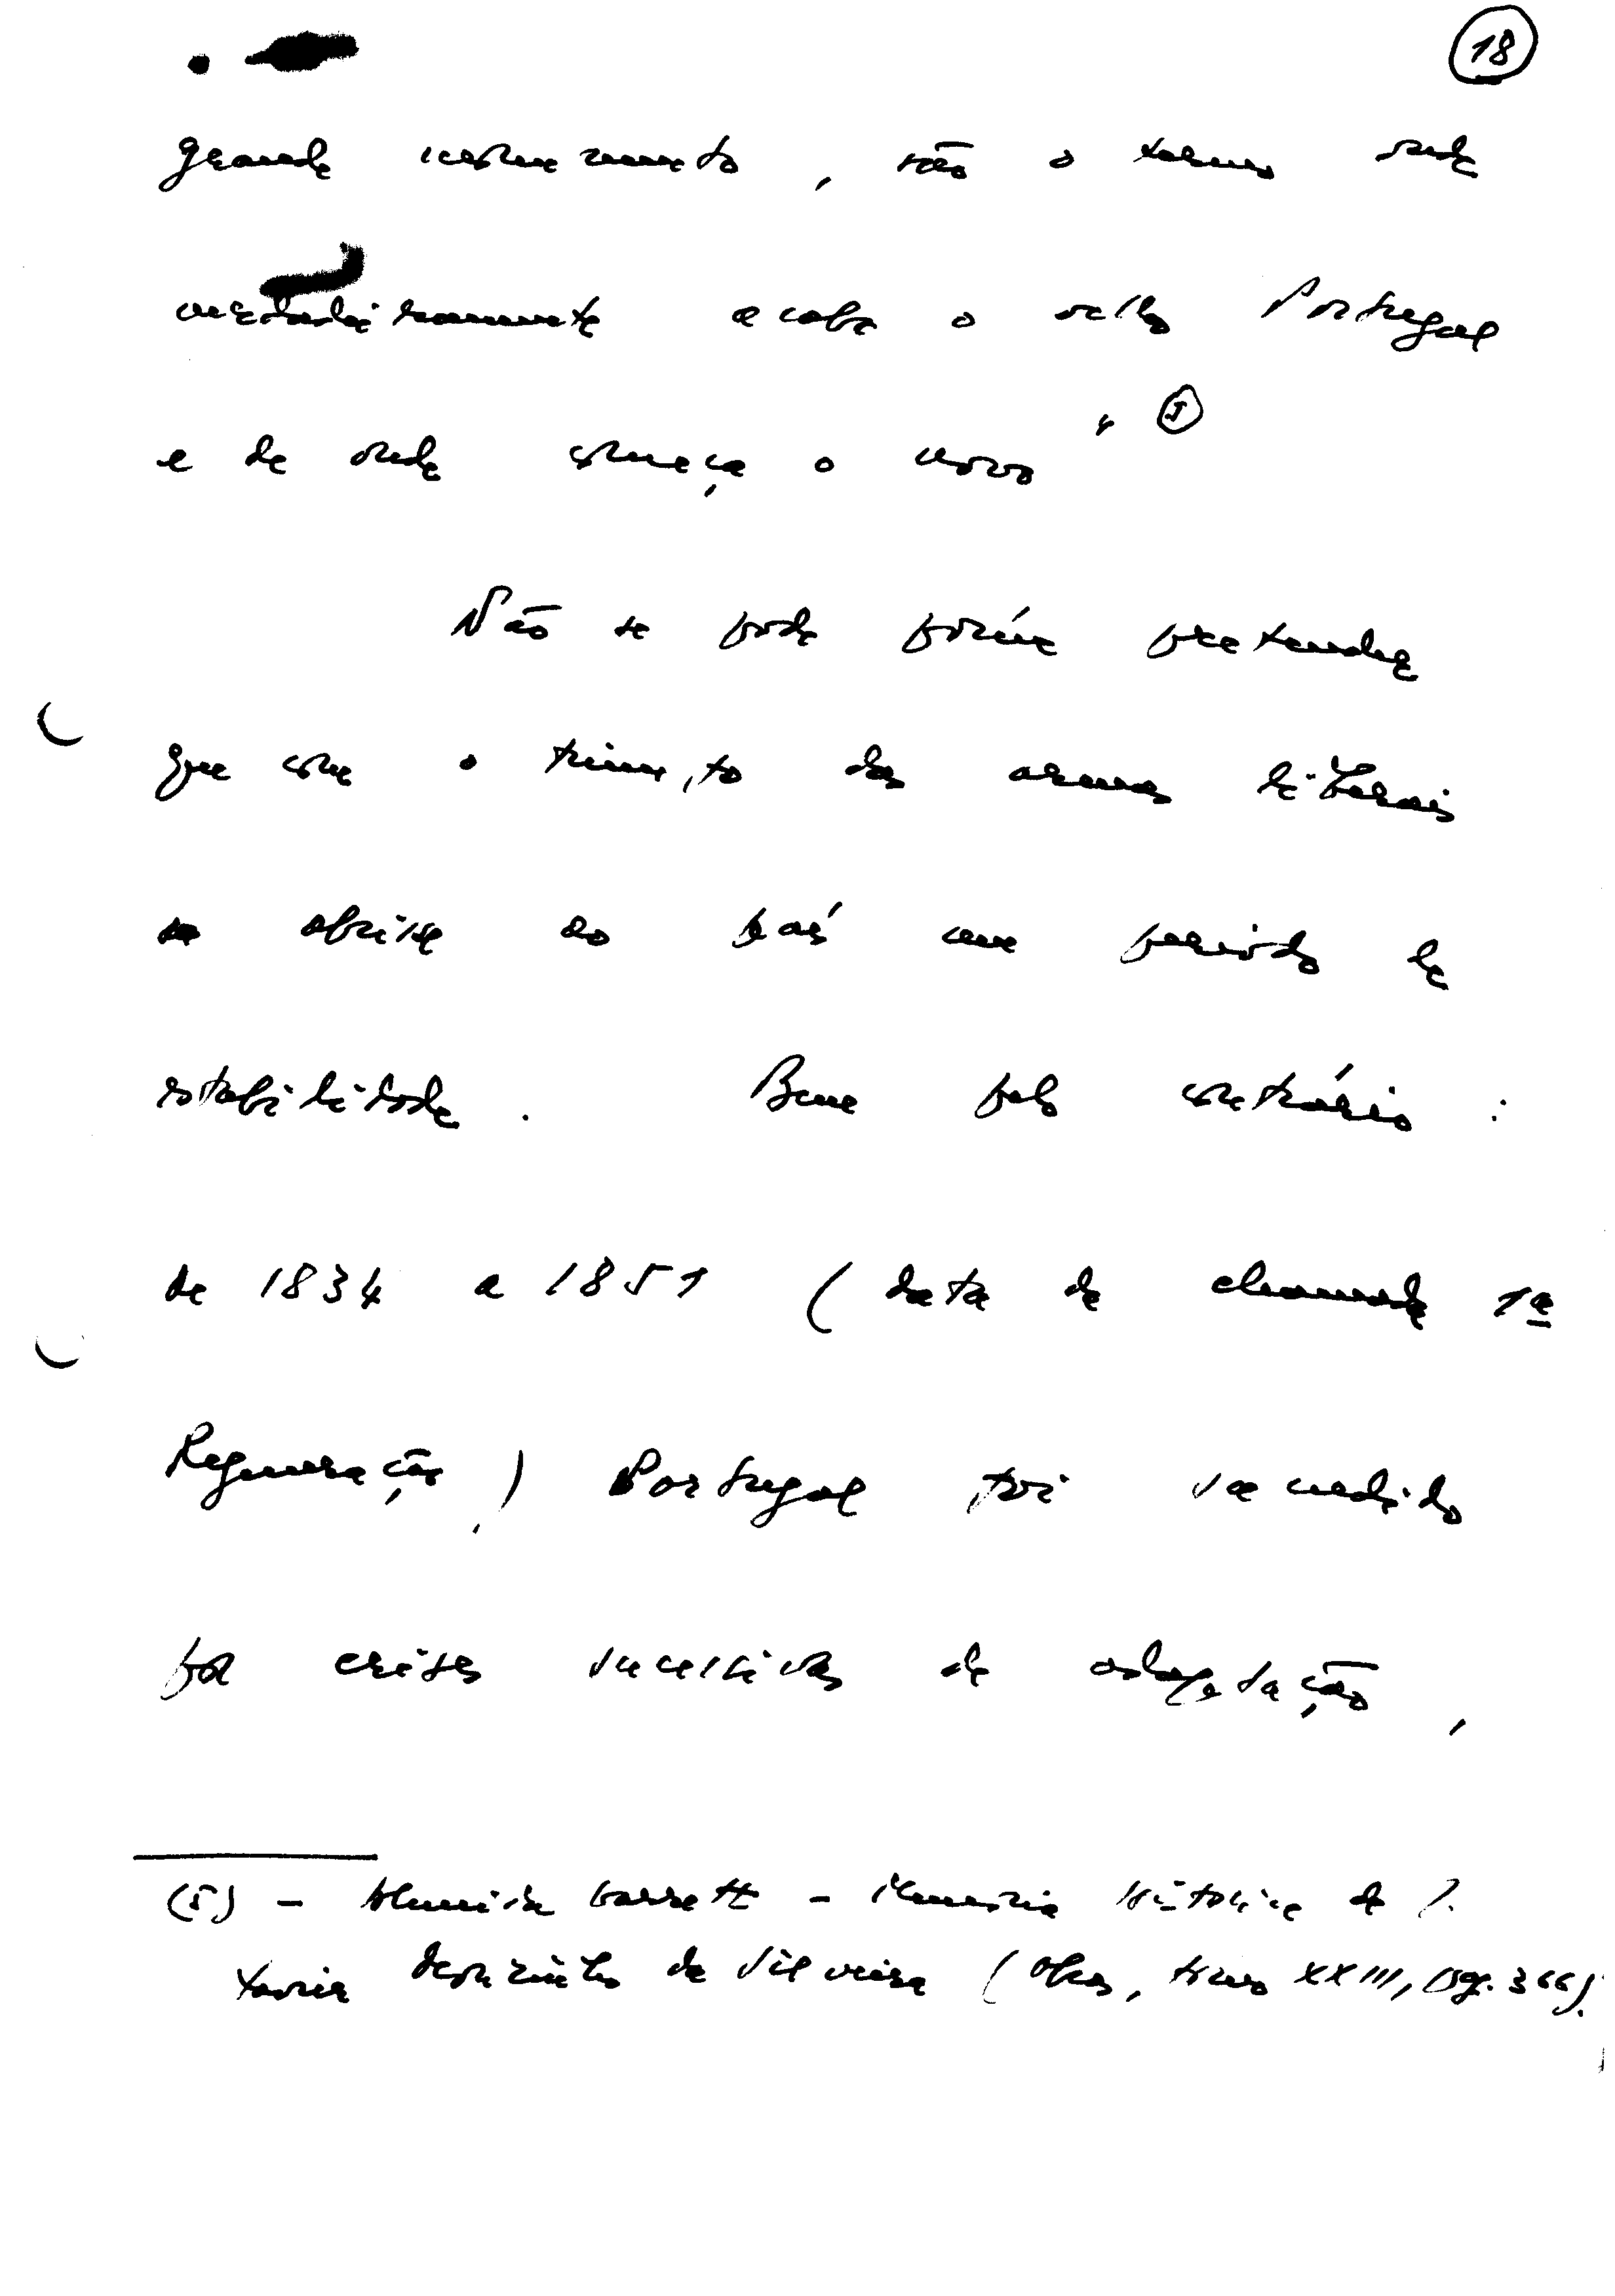 18
grande monumento, são o termo onde
verdadeiramente acaba o velho Portugal
e de onde começa o novo" (5)
Não se pode porém pretender
que com o triunfo das armas liberais
se abrisse ao país um período de
estabilidade. Bem pelo contrário:
de 1834 a 1851 (data da chamada 1ª
Regeneração,) Portugal foi sacudido
por crises sucessivas de adaptação,
(5) - Almeida Garrett - Memória Histórica de J.
Xavier Mouzinho da Silveira (Obras, tomo XXIII, pg. 366).